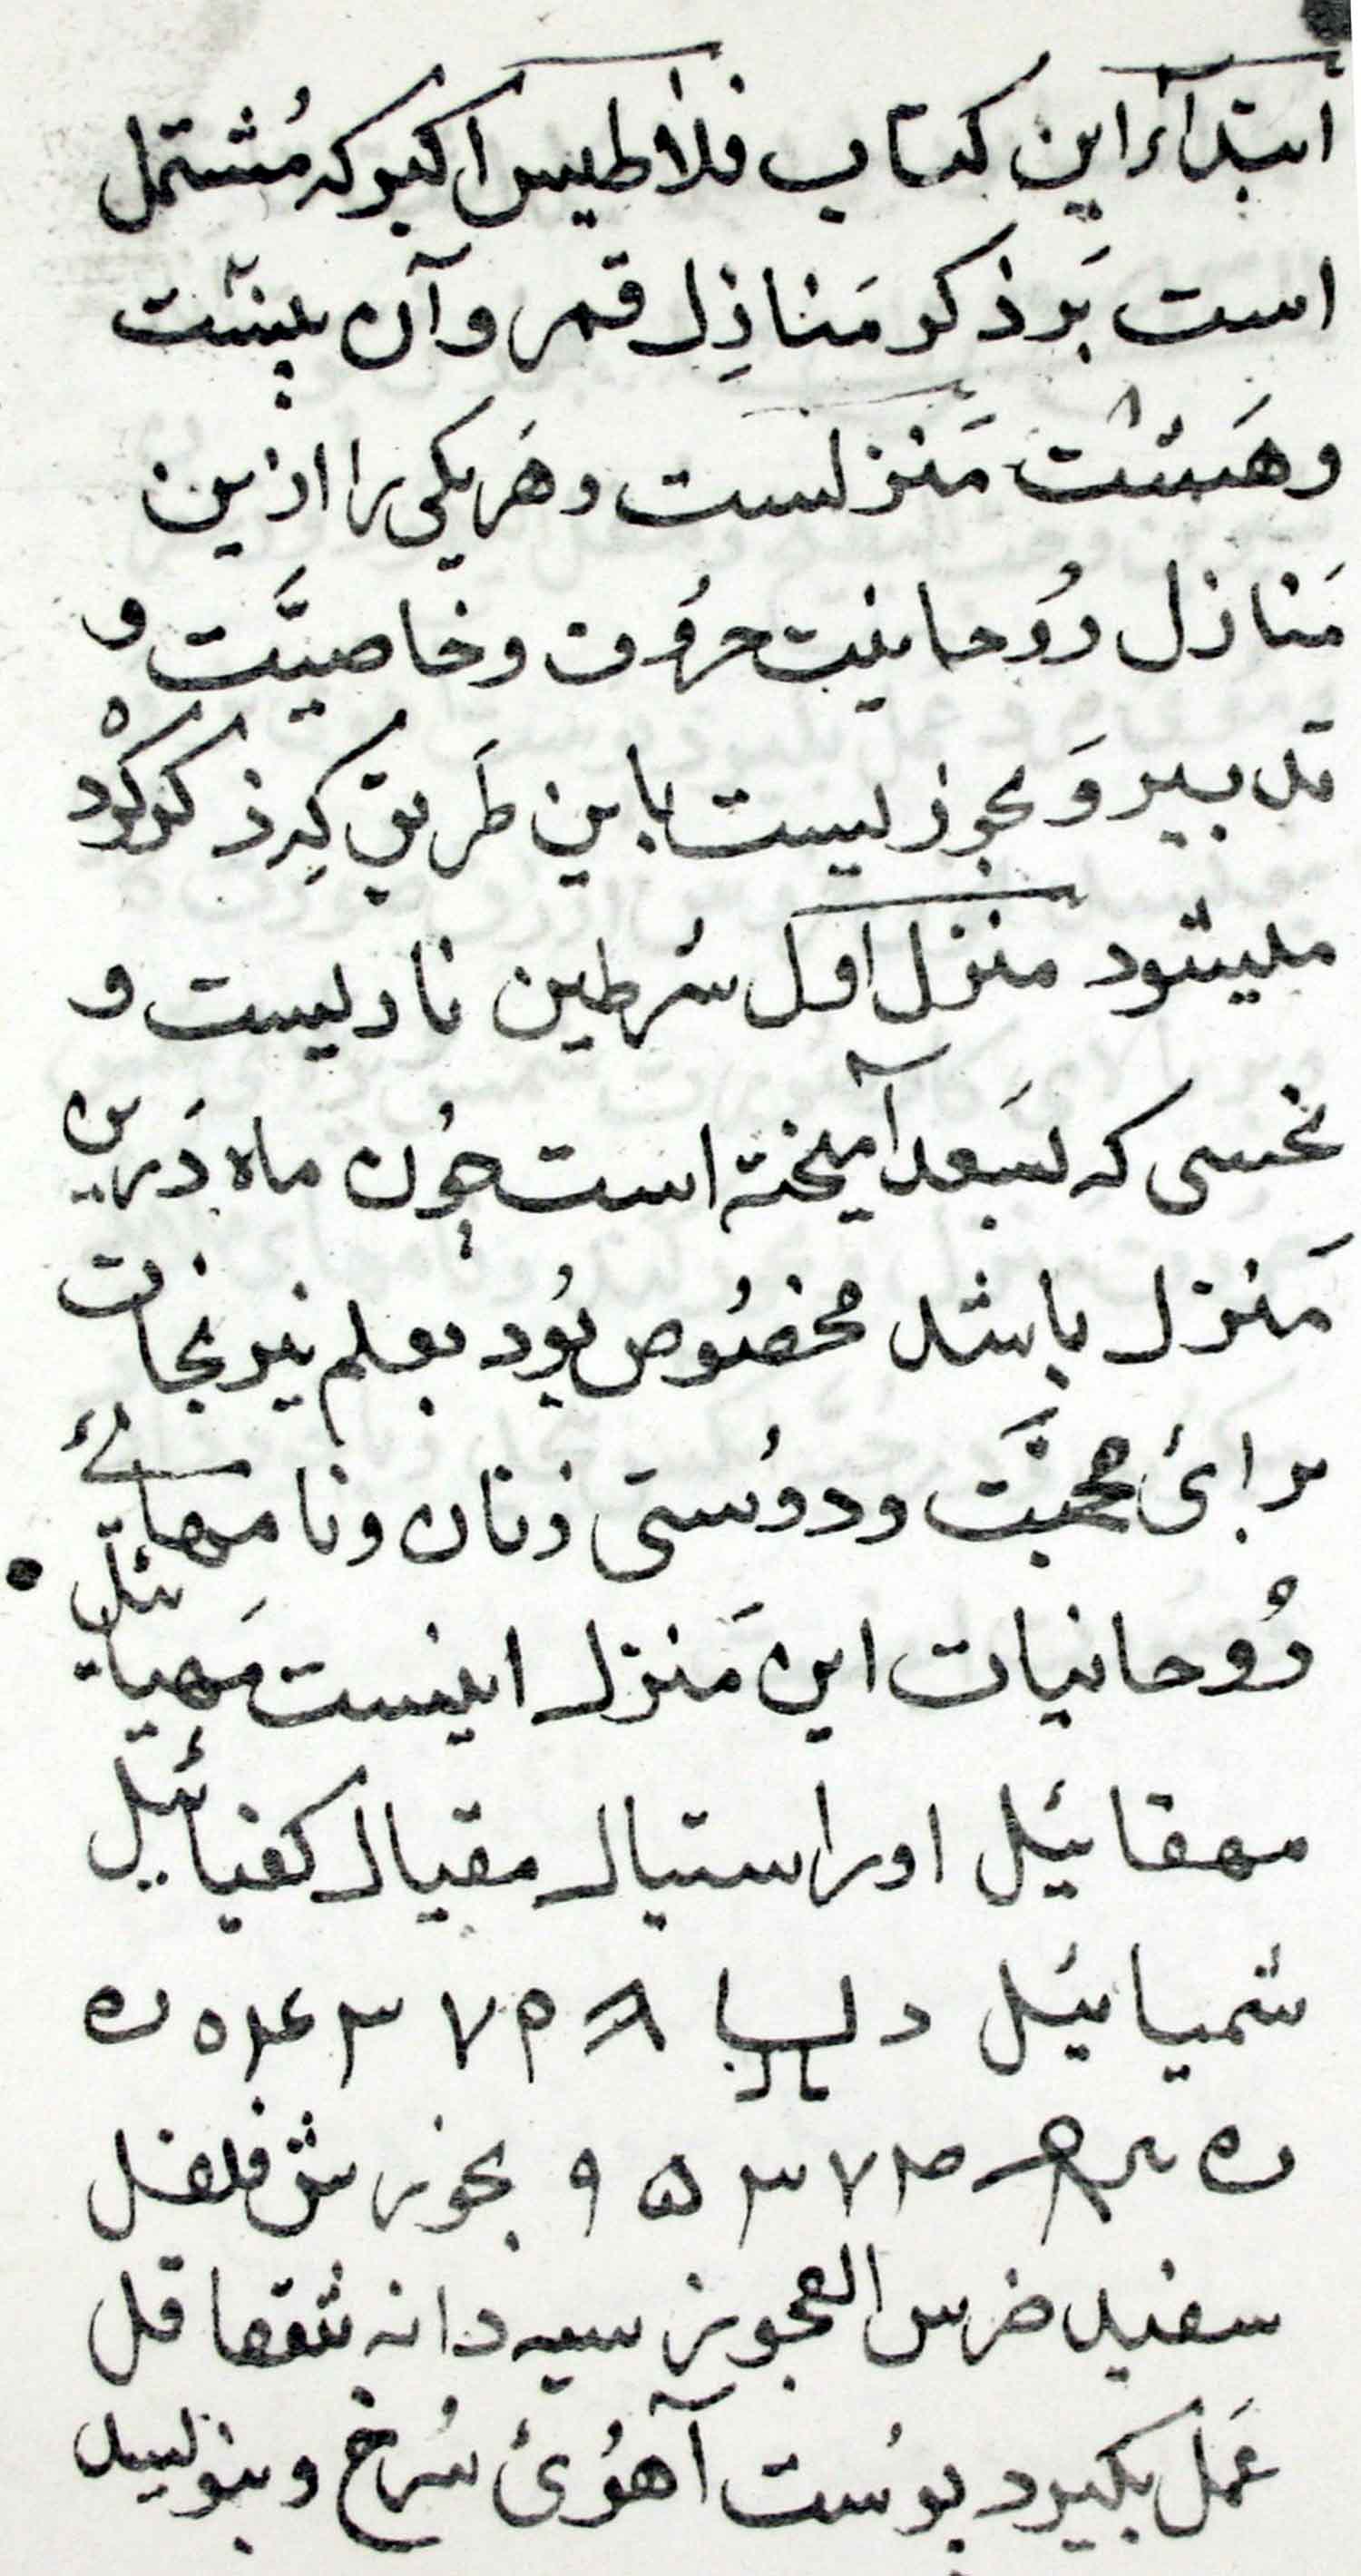 ابتداء این کتاب فلاطیس اکبر که مُشتمل
است بَر ذکر مَنازِل قمر و آن بیست
و هَشت مَنزلست و هَر یکی را ازین
مَنازل رُوحانیت حرُوف و خاصیَّت و
تدبیر وَ بخوریست باین طَریق کِه ذکر کرده
میشود منزل اول شُرطین ناریست و
نحسی که بسَعد آمیخته است چُون ماه دَرین
مَنزل باشد مخصُوص بُود بعلم نیرنجات
برائ محبَّت و دوُستی زنان و نامهائے
رُوحانیات این مَنزل اینست مَهیائیل
مهقائیل اوراستیال مقیال کفیائیل
شمیائیل د
بخورش فلفل
سفید ضرس العجوز سیه دانه شقاقل
عَمل بگیرد پوُست آهُوئ سُرخ و بنویسد